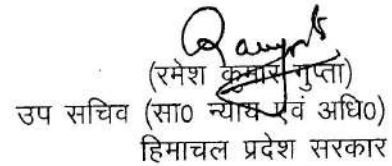 (रमेश कुमार गुप्ता)
उप सचिव (सा0 न्याय एवं अधि0)
हिमाचल प्रदेश सरकार